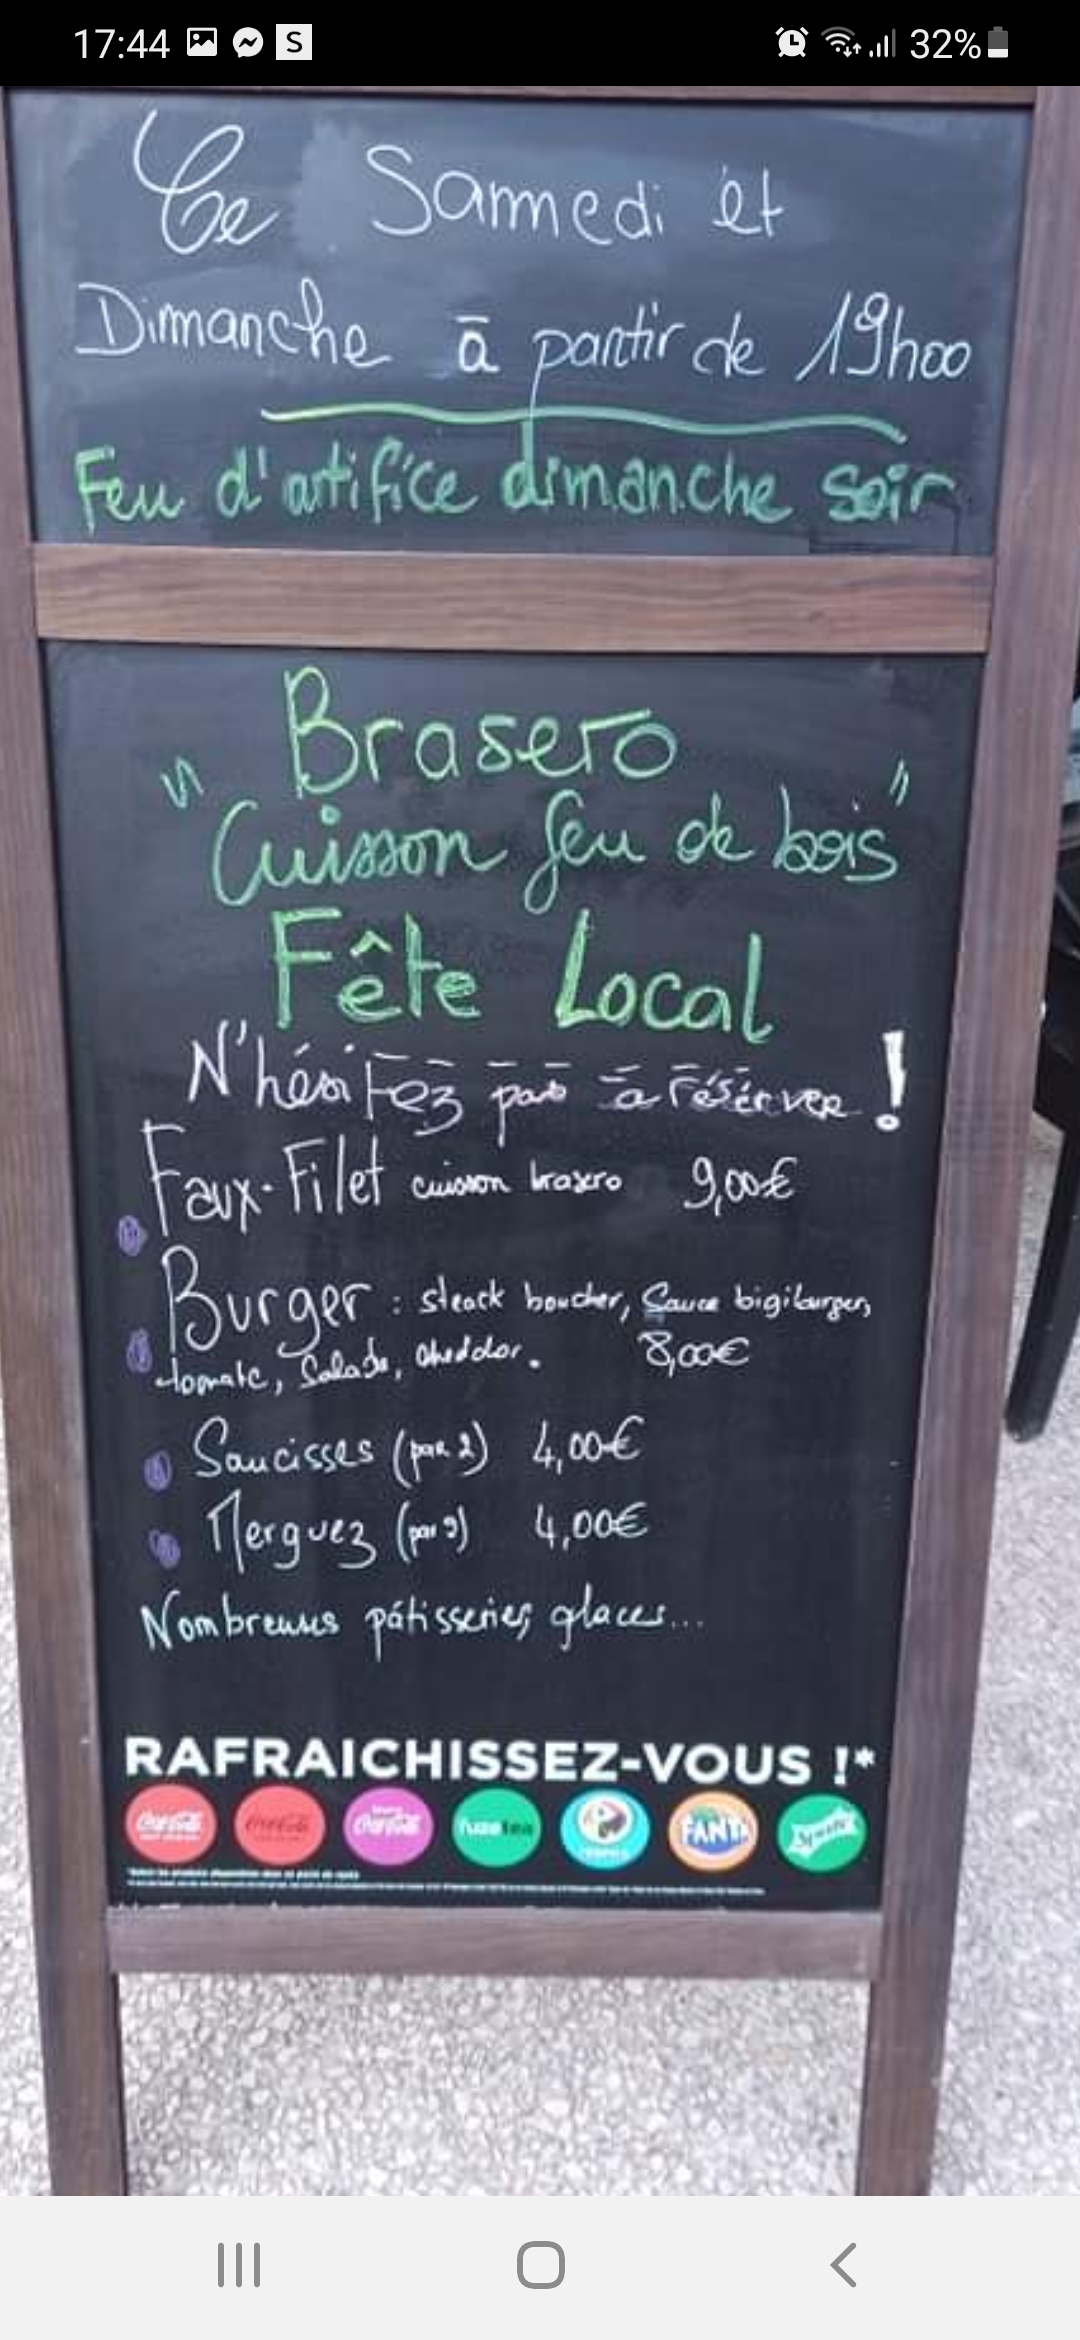 17:44 S 32%
Ce Samedi et
Dimanche à partir de 19h00
Feu d'artifice dimanche soir
Brasero
"Cuisson feu de bois"
Fête Local
N'hésitez pas à réserver !
Faux-Filet cuisson brasero 9,00€
Burger : steack boucher, Sauce bigiburger,
tomate, Salade, cheddar. 8,00€
Saucisses (par 2) 4,00€
Merguez (par 3) 4,00€
Nombreuses pâtisseries, glaces...
RAFRAICHISSEZ-VOUS !*
Coca-Cola Coca-Cola Coca-Cola fuzetea FANTA Sprite